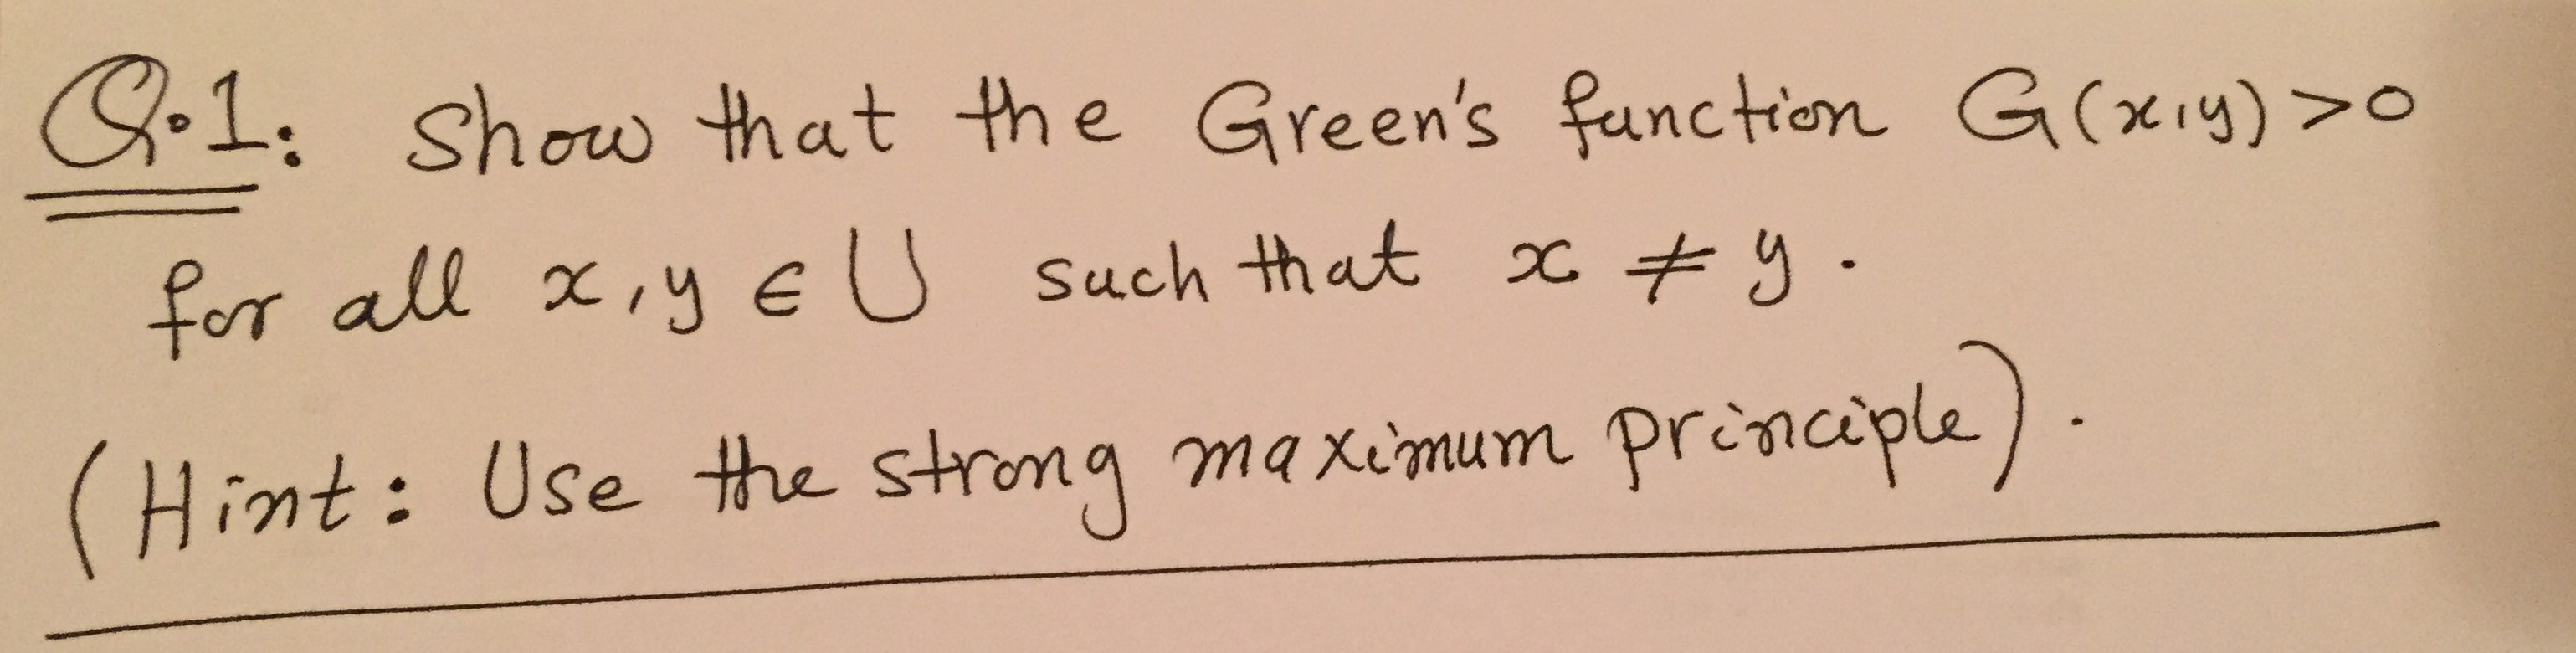 Q.1: Show that the Green's function G(x,y) >0
for all x,y ∈ U such that x ≠ y.
(Hint: Use the strong maximum principle).